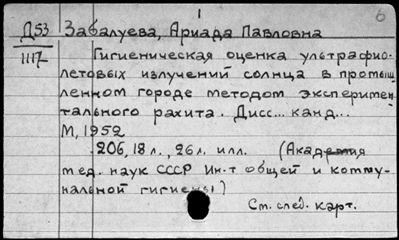 1
6
Д53 Забалуева, Ариада Павловна
1117 Гигиеническая оценка ультрафио-
летовых излучений солнца в промыш
ленном городе методом эксперимен
тального рахита. Дисс... канд...
М, 1952
206, 18 л., 26 л. илл. (Академия
мед. наук СССР Ин-т общей и комму-
нальной гигиены)
См. след. карт.